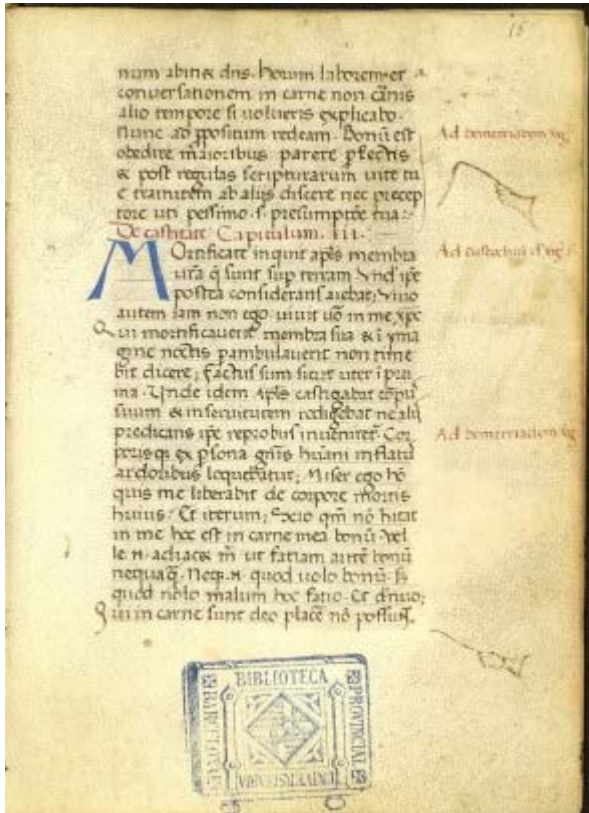 15
num abire dns. horum laborem et
conversationem in carne non carnis
alio tempore si volueris explicabo.
Nunc ad ppositum redeam. Bonū est
obedire maioribus parere pfectis
& post regulas scripturarum vite tu
e tramitem ab aliis discere nec precep
tore uti pessimo. s. presumptōe tua:
De castitate Capitulum. III.
MOrtificate inquit apls membra
vrā q̄ sunt sup terram Vnd ipe
postea considerans aiebat; Vivo
autem iam non ego vivit vō in me xpc
Qui mortificaverit membra sua & ī yma
gine noctis pambulaverit non time
bit dicere; factus sum sicut uter ī prui
ina. Unde idem apls castigabat corpꝰ
suum & in servitutem redigebat ne aliis
predicans ipe reprobus inveniret. Cor
poris ex psona gnis huāni inflatū
ardoribus loquebatur; Miser ego hō
quis me liberabit de corpore mortis
huius? Et iterum; Scio qm nō hitat
in me hoc est in carne mea bonū Vel
le n. adiacet m ut fatiam autē bonū
nequaq̄. Neq. n. quod volo bonū. s
quod nolo malum hoc fatio. Et dnuo;
Qui in carne sunt deo placē nō possut.
Ad demetriadem vg
Ad eustochiū d vg
Ad demetriadem vg
BIBLIOTECA
PROVINCIAL
UNIVERSITARIA
BARCELONA